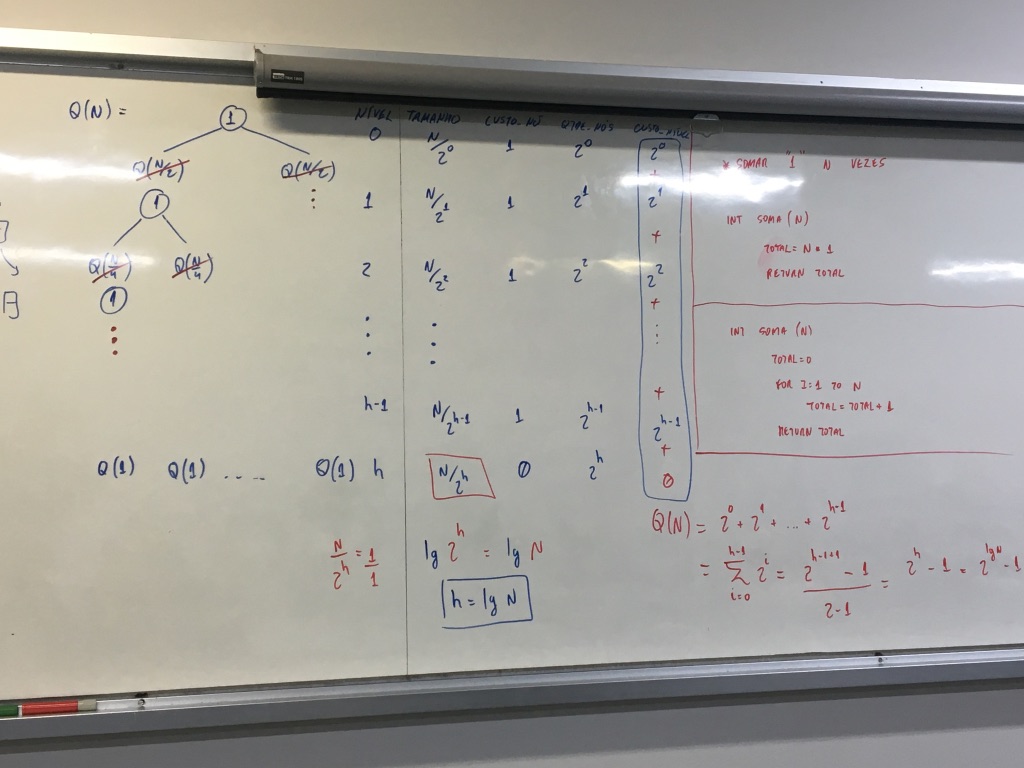 Q(N) = 1
Q(N/2) Q(N/2)
1
Q(N/4) Q(N/4)
1
Q(1) Q(1) .... Q(1)
NÍVEL TAMANHO CUSTO-NÓ QTDE-NÓS CUSTO-NÍVEL
0 N/2^0 1 2^0 2^0
+
1 N/2^1 1 2^1 2^1
+
2 N/2^2 1 2^2 2^2
+
+
h-1 N/2^h-1 1 2^h-1 2^h-1
+
h N/2^h 0 2^h 0
N/2^h = 1/1
lg 2^h = lg N
h = lg N
* SOMAR "1" N VEZES
INT SOMA (N)
TOTAL = N * 1
RETURN TOTAL
INT SOMA (N)
TOTAL=0
FOR I=1 TO N
TOTAL = TOTAL + 1
RETURN TOTAL
Q(N) = 2^0 + 2^1 + ... + 2^h-1
= ∑ i=0 h-1 2^i = 2^h-1+1 - 1 / 2-1 = 2^h - 1 = 2^lg N - 1